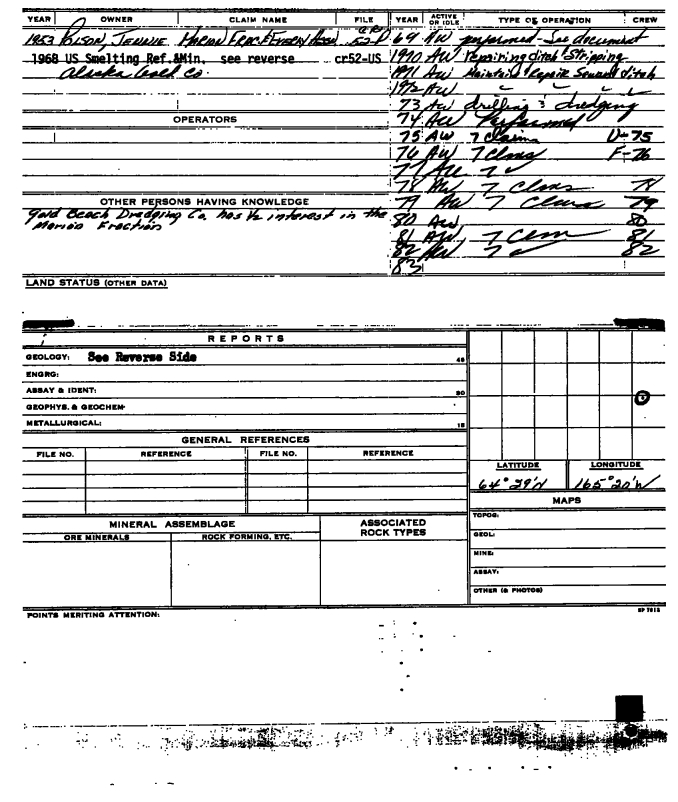 YEAR OWNER CLAIM NAME FILE YEAR ACTIVE OR IDLE TYPE OF OPERATION CREW
1953 Polson, Jennie Marion Frac 69 AW performed - See document
1968 US Smelting Ref.&Min. see reverse cr52-US 1970 AW Repairing ditch & Stripping
Alaska Gold Co. 1971 AW Maintain & Repair Seward ditch
1972 AW " " "
73 AW drilling & dredging
OPERATORS 74 AW Performed
75 AW 7 Claims U-75
76 AW 7 Clms F-76
77 AW 7 ✓
78 AW 7 Clms 78
OTHER PERSONS HAVING KNOWLEDGE 79 AW 7 Clms 79
Gold Beach Dredging Co. has ½ interest in the 80 AW 80
Marion Fraction 81 AW, 7 Clm 81
82 AW 7 ✓ 82
83
LAND STATUS (OTHER DATA)
REPORTS
GEOLOGY: See Reverse Side
ENGRG:
ASSAY & IDENT:
GEOPHYS. & GEOCHEM
METALLURGICAL: 15
GENERAL REFERENCES
FILE NO. REFERENCE FILE NO. REFERENCE
LATITUDE LONGITUDE
64° 29'N 165° 20'W
MAPS
MINERAL ASSEMBLAGE ASSOCIATED ROCK TYPES
ORE MINERALS ROCK FORMING, ETC.
TOPOG:
GEOL:
MINE:
ASSAY:
OTHER (& PHOTOS)
POINTS MERITING ATTENTION: